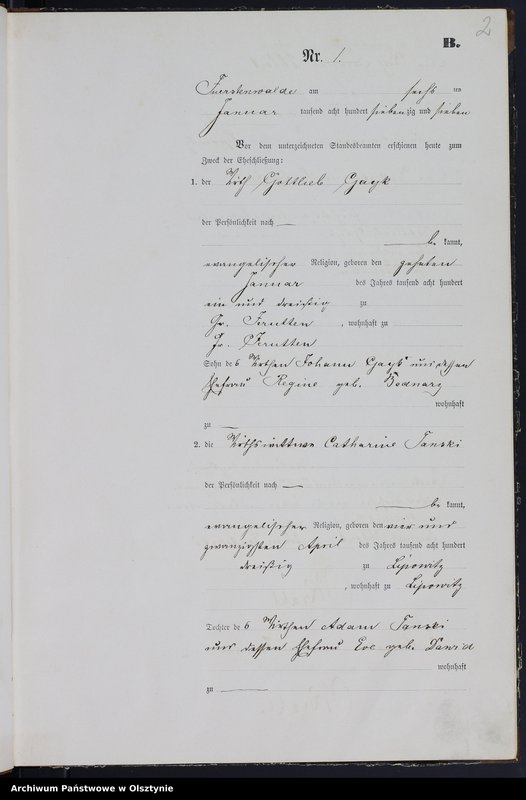 2
B.
Nr. 1.
Fuerstenwalde am sechs ten
Januar tausend acht hundert siebenzig und sieben
Vor dem unterzeichneten Standesbeamten erschienen heute zum
Zweck der Eheschließung:
1. der Wirth Gottlieb Gayk
der Persönlichkeit nach
be kannt,
evangelischer Religion, geboren den zehnten
Januar des Jahres tausend acht hundert
ein und dreißig zu
Gr. Jerutten, wohnhaft zu
Gr. Jerutten
Sohn des Wirthen Johann Gayk und dessen
Ehefrau Regine geb. Bednarz
wohnhaft
zu
2. die Wirthswittwe Catharine Tanski
der Persönlichkeit nach
be kannt,
evangelischer Religion, geboren den vier und
zwanzigsten April des Jahres tausend acht hundert
dreißig zu Lipowitz
, wohnhaft zu Lipowitz
Tochter des Wirthen Adam Tanski
und dessen Ehefrau Eve geb. Dawid
wohnhaft
zu
Archiwum Państwowe w Olsztynie